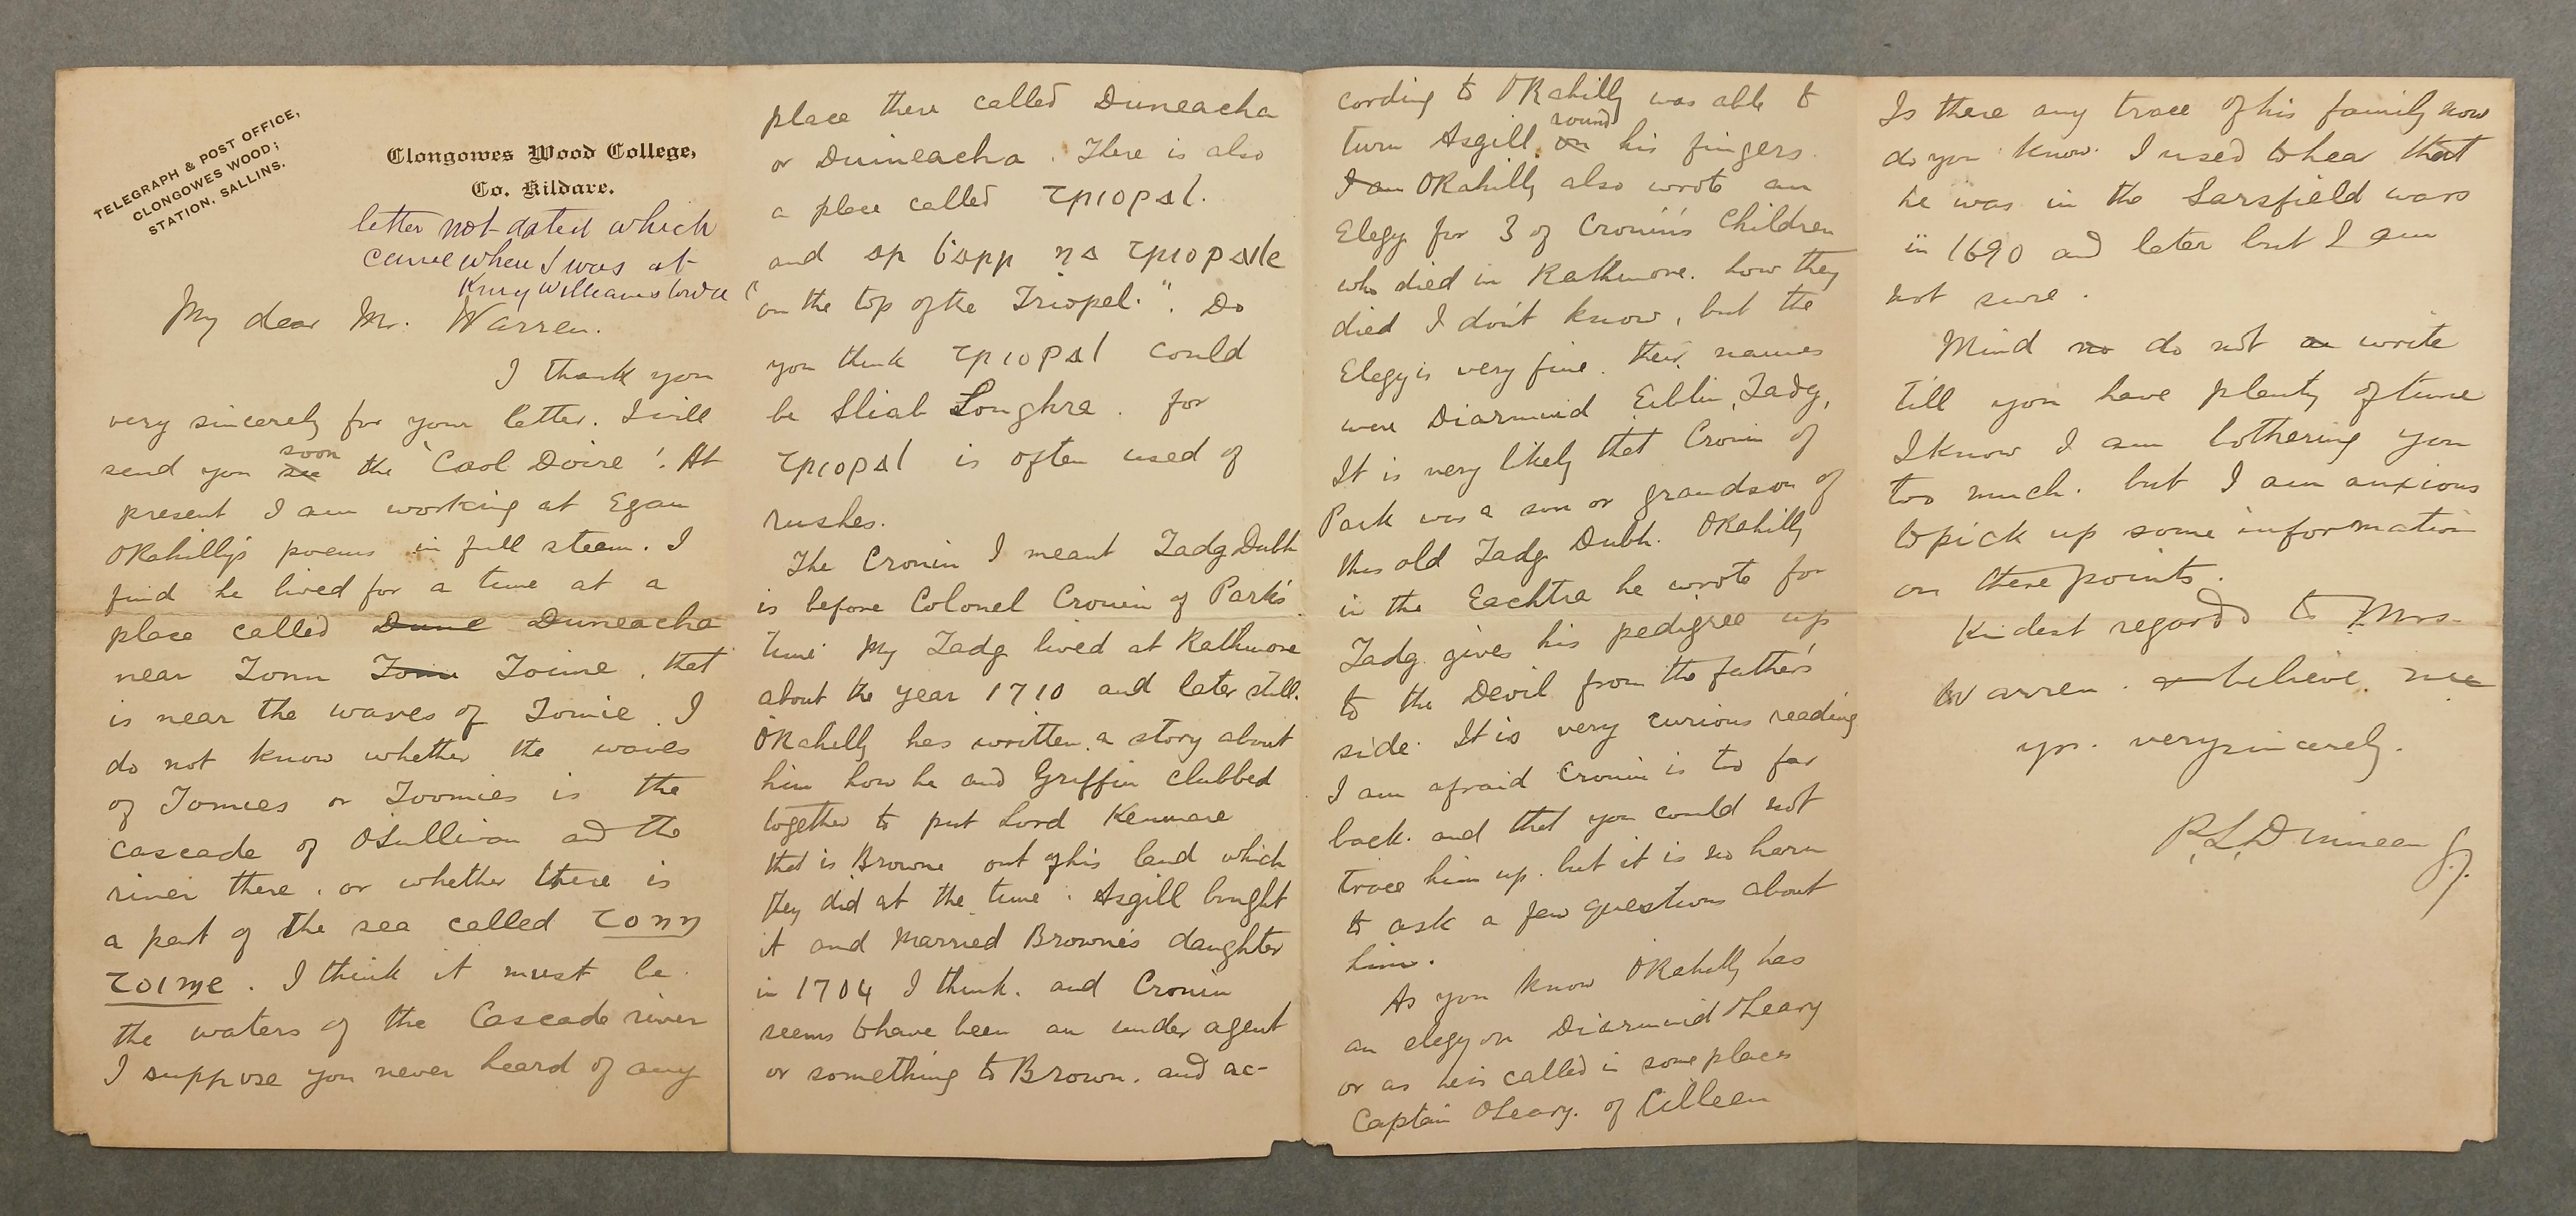 TELEGRAPH & POST OFFICE,
CLONGOWES WOOD;
STATION, SALLINS.
Clongowes Wood College,
Co. Kildare.
letter not dated which
came when I was at
King Williamstown
My dear Mr. Warren.
I thank you
very sincerely for your letter. I will
send you soon the 'Caol Doire'. At
present I am working at Egan
ORahilly's poems in full steam. I
find he lived for a time at a
place called Dune Duneacha
near Tonn Tom Toime, that
is near the waves of Tomie. I
do not know whether the waves
of Tomies or Toomies is the
cascade of OSullivan and the
river there, or whether there is
a part of the sea called Tonn
Toime. I think it must be
the waters of the Cascade river
I suppose you never heard of any
place there called Duneacha
or Duineacha. There is also
a place called Triopal.
and ar barr na Triopaille
"on the top of the Triopel.". Do
you think Triopal could
be Sliab Loughra. for
Triopal is often used of
rushes.
The Cronin I meant Tadg Dubh
is before Colonel Cronin of Park's
time My Tadg lived at Rathmore
about the year 1710 and later still.
ORahilly has written a story about
him how he and Griffin clubbed
together to put Lord Kenmare
that is Browne out of his land which
they did at the time. Asgill bought
it and Married Browne's daughter
in 1704 I think. and Cronin
seems to have been an under agent
or something to Brown. and ac-
cording to ORahilly was able to
turn Asgill on round his fingers.
I am ORahilly also wrote an
Elegy for 3 of Cronin's Children
who died in Rathmore. how they
died I don't know, but the
Elegy is very fine. their names
were Diarmuid Eiblin, Tadg,
It is very likely that Cronin of
Park was a son or grandson of
this old Tadg Dubh. ORahilly
in the Eachtra he wrote for
Tadg gives his pedigree up
to the Devil from the father's
side. It is very curious reading
I am afraid Cronin is too far
back. and that you could not
trace him up. but it is no harm
to ask a few questions about
him.
As you know ORahilly has
an elegy on Diarmuid OLeary
or as he is called in some places
Captain OLeary. of Cilleen
Is there any trace of his family now
do you know. I used to hear that
he was in the Sarsfield wars
in 1690 and later but I am
not sure.
Mind no do not an write
till you have plenty of time
I know I am bothering you
too much. but I am anxious
to pick up some information
on these points.
Kindest regards to Mrs.
Warren. & believe me
yrs. very sincerely.
P.S. Dinneen S.J.